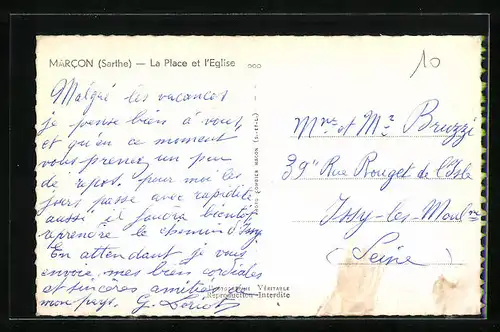 MARÇON (Sarthe) — La Place et l'Eglise
10
Malgré les vacances
je pense bien à vous,
et qu'en ce moment
vous prenez un peu
de repos. pour moi les
jours passe avec rapidité
aussi il faudra bientôt
reprendre le chemin d'Issy
En attendant je vous
envoie, mes bien cordiales
et sincères amitiés de
mon pays. G.
Mme et Mr Bruzzi
39" Rue Rouget de l'Isle
Issy-les-Moulne
(Seine)
COMBIER MACON (S.-et-L.)
VÉRITABLE
Reproduction Interdite